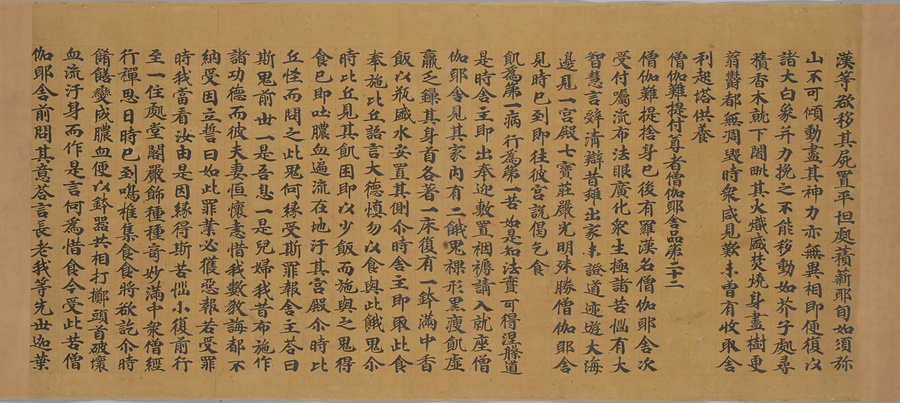 漢等欲移其屍置平坦處積薪耶旬如須弥
山不可傾動盡其神力亦無異相即便復以
諸大白象并力挽之不能移動如芥子處尋
積香木就下闍毗其火熾盛焚燒身盡樹更
蓊欝都無凋毀時衆咸見歎未曾有收取舍
利起塔供養
僧伽難提付尊者僧伽耶舍品第二十二
僧伽難提捨身已後有羅漢名僧伽耶舍次
受付屬流布法眼廣化衆生極諸苦惱有大
智慧言辝清辯昔雖出家未證道迹遊大海
邊見一宮殿七寶莊嚴光明殊勝僧伽耶舍
見時已到即往彼宮說偈乞食
飢為第一病行為第一苦如是知法寶可得涅槃道
是時舍主即出奉迎敷置裀褥請入就座僧
伽耶舍見其家内有二餓鬼裸形黑瘦飢虛
羸乏鏁其身首各著一床復有一鉢滿中香
飯以瓶盛水安置其側尒時舍主即取此食
奉施比丘語言大德慎勿以食與此餓鬼尒
時比丘見其飢困即以少飯而施與之鬼得
食已即吐膿血遍流在地汙其宮殿尒時比
丘怪而問之此鬼何緣受斯罪報舍主荅曰
斯鬼前世一是吾息一是兒婦我昔布施作
諸功德而彼夫妻恒懷恚惜我數教誨都不
納受因立誓曰如此罪業必獲惡報若受罪
時我當看汝由是因緣得斯苦惱小復前行
至一住處堂閣嚴飾種種奇妙滿中衆僧經
行禪思日時已到鳴椎集食食將欲訖尒時
餚饍變成膿血便以鉢器共相打擲頭首破壞
血流汙身而作是言何為惜食今受此苦僧
伽耶舍前問其意荅言長老我等先世迦葉